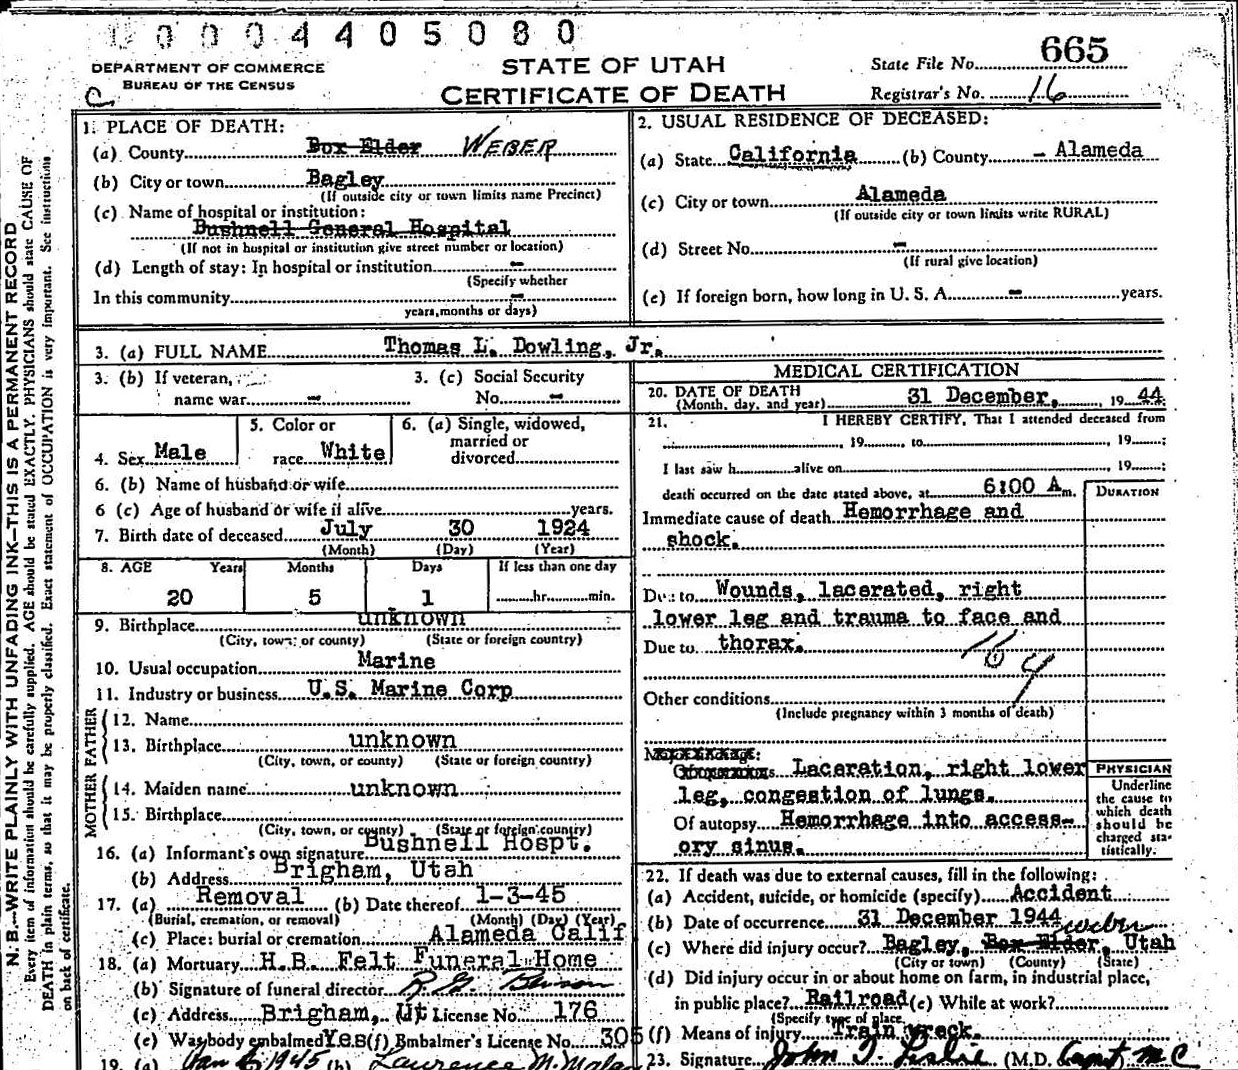 0 0 0 4 4 0 5 0 8 0
DEPARTMENT OF COMMERCE
BUREAU OF THE CENSUS
C
STATE OF UTAH
CERTIFICATE OF DEATH
State File No. 665
Registrar's No. 16
N. B.—WRITE PLAINLY WITH UNFADING INK—THIS IS A PERMANENT RECORD
Every item of information should be carefully supplied. AGE should be stated EXACTLY. PHYSICIANS should state CAUSE OF
DEATH in plain terms, so that it may be properly classified. Exact statement of OCCUPATION is very important. See instructions
on back of certificate.
1. PLACE OF DEATH:
(a) County Box Elder WEBER
(b) City or town Bagley
(If outside city or town limits name Precinct)
(c) Name of hospital or institution:
Bushnell General Hospital
(If not in hospital or institution give street number or location)
(d) Length of stay: In hospital or institution -
(Specify whether
In this community -
years, months or days)
2. USUAL RESIDENCE OF DECEASED:
(a) State California (b) County - Alameda
(c) City or town Alameda
(If outside city or town limits write RURAL)
(d) Street No. -
(If rural give location)
(e) If foreign born, how long in U. S. A. - years.
3. (a) FULL NAME Thomas L. Dowling, Jr.
3. (b) If veteran,
name war -
3. (c) Social Security
No. -
4. Sex Male
5. Color or
race White
6. (a) Single, widowed,
married or
divorced
6. (b) Name of husband or wife
6 (c) Age of husband or wife if alive years.
7. Birth date of deceased July 30 1924
(Month) (Day) (Year)
8. AGE Years Months Days If less than one day
20 5 1 hr. min.
9. Birthplace unknown
(City, town, or county) (State or foreign country)
10. Usual occupation Marine
11. Industry or business U.S. Marine Corp
FATHER
12. Name
13. Birthplace unknown
(City, town, or county) (State or foreign country)
MOTHER
14. Maiden name unknown
15. Birthplace
(City, town, or county) (State or foreign country)
16. (a) Informant's own signature Bushnell Hospt.
(b) Address Brigham, Utah
17. (a) Removal (b) Date thereof 1-3-45
(Burial, cremation, or removal) (Month) (Day) (Year)
(c) Place: burial or cremation Alameda Calif
18. (a) Mortuary H.B. Felt Funeral Home
(b) Signature of funeral director
(c) Address Brigham, Ut License No. 176
(e) Was body embalmed Yes (f) Embalmer's License No. 305
19. (a) Jan 1945 (b) Lawrence M.
MEDICAL CERTIFICATION
20. DATE OF DEATH
(Month, day, and year) 31 December, 19 44
21. I HEREBY CERTIFY, That I attended deceased from
, 19 , to , 19 ;
I last saw h alive on , 19 ;
death occurred on the date stated above, at 6:00 A m.
DURATION
Immediate cause of death Hemorrhage and
shock.
Due to Wounds, lacerated, right
lower leg and trauma to face and
Due to thorax.
Other conditions
(Include pregnancy within 3 months of death)
Laceration, right lower
leg, congestion of lungs.
Of autopsy Hemorrhage into access-
ory sinus.
PHYSICIAN
Underline
the cause to
which death
should be
charged sta-
tistically.
22. If death was due to external causes, fill in the following:
(a) Accident, suicide, or homicide (specify) Accident
(b) Date of occurrence 31 December 1944
weber
(c) Where did injury occur? Bagley, Box Elder, Utah
(City or town) (County) (State)
(d) Did injury occur in or about home on farm, in industrial place,
in public place? Railroad (e) While at work?
(Specify type of place
(f) Means of injury Train wreck.
23. Signature John T. Leslie (M.D. Capt, MC